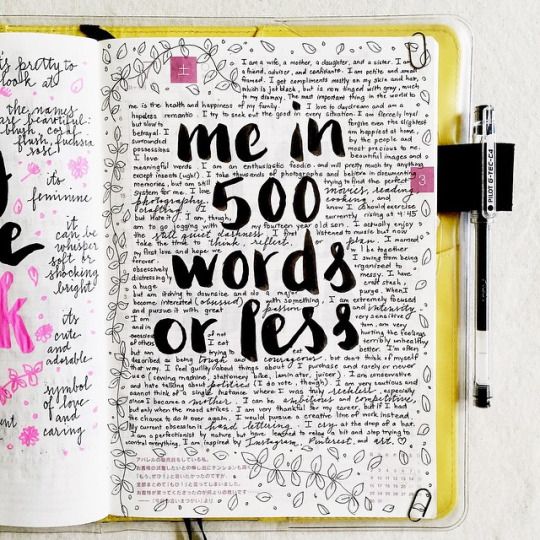 it's pretty to
look at
the names
are beautiful:
blush, coral
flush, fuchsia
rose
it's
feminine
it
can be
whisper
soft or
shocking
bright
it's
cute
and
adorable
symbol
of love
and
caring
土
I am a wife, a mother, a daughter, and a sister. I am
a friend, adviser, and confidante. I am petite and small
framed. I get compliments mostly on my skin, my hair
which is jet black, but is now tinged with gray, much
to my dismay. The most important thing in the world to
me is the health and happiness of my family. I love to daydream and am a
hopeless romantic. I try to seek out the good in every situation. I am fiercely loyal
but slow to forgive even the slightest
betrayal. I am happiest at home,
surrounded by the people and
possessions most precious to me.
I love beautiful images and
meaningful words. I am an enthusiastic foodie and will pretty much try anything
except insects (ugh). I take thousands of photographs and believe in documenting
memories, but am still trying to find the perfect
system for me. I love movies, reading
photography, cooking and
crafting. I know I should exercise
but hate it. I am, though, currently rising at 4:45
am to go jogging with my fourteen year old son. I actually enjoy
the still quiet darkness. I first listened to music but now
take the time to think, reflect, plan. I married
my first love and hope we will be together
forever. I swing from being
obsessively organized to
distressingly messy. I have
a huge craft stash,
but am itching to downsize and do a major purge. When I
become interested (obsessed) with something, I am extremely focused
and pursue it with great passion and intensity
I am very sensitive and
and in turn, am very
hurting the feelings
of others. I eat terribly unhealthy
but am trying to eat better. I'm often
described as being tough and courageous, but don't think of myself
that way. I feel guilty about things about I purchase and rarely or never
use (sewing machine, stationery bike, laminator, juicer). I am conservative
and hate talking about politics (I do vote, though). I am very cautious and
cannot think of a single instance where I was truly reckless, especially
since I became a mother. I can be ambitious and competitive,
but only when the mood strikes. I am very thankful for my career, but if I had
the chance to do it over again, I would pursue a creative line of work instead.
My current obsession is hand lettering. I cry at the drop of a hat.
I am a perfectionist by nature, but have learned to relax a bit and stop trying to
control everything. I am inspired by Instagram, Pinterest, and art.
me in
500
words
or less
3
PILOT G-TEC-C4